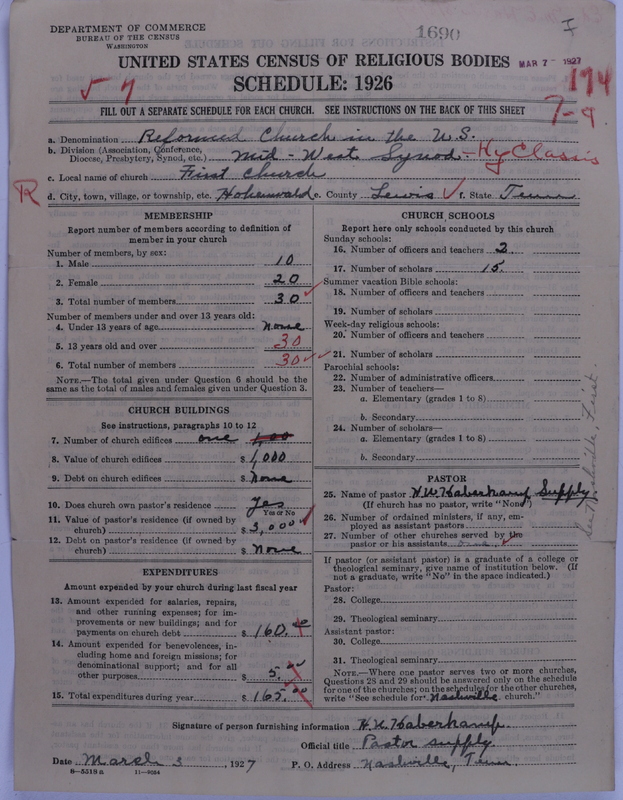 DEPARTMENT OF COMMERCE
BUREAU OF THE CENSUS
WASHINGTON
1690
I
UNITED STATES CENSUS OF RELIGIOUS BODIES
MAR 7 - 1927
SCHEDULE: 1926
174
5 7
7-9
FILL OUT A SEPARATE SCHEDULE FOR EACH CHURCH. SEE INSTRUCTIONS ON THE BACK OF THIS SHEET
a. Denomination Reformed Church in the U.S.
b. Division (Association, Conference, Diocese, Presbytery, Synod, etc.) Mid-West Synod - Ky Classis
c. Local name of church First Church
R d. City, town, village, or township, etc. Hohenwald e. County Lewis ✓ f. State Tenn
MEMBERSHIP
Report number of members according to definition of
member in your church
Number of members, by sex:
1. Male 10
2. Female 20
3. Total number of members 30 ✓
Number of members under and over 13 years old:
4. Under 13 years of age None
5. 13 years old and over 30
6. Total number of members 30 ✓ ✓
NOTE.—The total given under Question 6 should be the
same as the total of males and females given under Question 3.
CHURCH BUILDINGS
See instructions, paragraphs 10 to 12
7. Number of church edifices one
8. Value of church edifices $ 1,000
9. Debt on church edifices $ None
10. Does church own pastor's residence Yes
Yes or No
11. Value of pastor's residence (if owned by
church) $ 3,000 ✓
12. Debt on pastor's residence (if owned by
church) $ None
EXPENDITURES
Amount expended by your church during last fiscal year
13. Amount expended for salaries, repairs,
and other running expenses; for im-
provements or new buildings; and for
payments on church debt $ 160.00
14. Amount expended for benevolences, in-
cluding home and foreign missions; for
denominational support; and for all
other purposes $ 5.00
15. Total expenditures during year $ 165.00
CHURCH SCHOOLS
Report here only schools conducted by this church
Sunday schools:
16. Number of officers and teachers 2
17. Number of scholars 15
Summer vacation Bible schools:
18. Number of officers and teachers
19. Number of scholars
Week-day religious schools:
20. Number of officers and teachers
21. Number of scholars
Parochial schools:
22. Number of administrative officers
23. Number of teachers—
a. Elementary (grades 1 to 8)
b. Secondary
24. Number of scholars—
a. Elementary (grades 1 to 8)
b. Secondary
See Nashville, First.
PASTOR
25. Name of pastor H.W. Haberkamp Supply
(If church has no pastor, write "None")
26. Number of ordained ministers, if any, em-
ployed as assistant pastors
27. Number of other churches served by the
pastor or his assistants
If pastor (or assistant pastor) is a graduate of a college or
theological seminary, give name of institution below. (If
not a graduate, write "No" in the space indicated.)
Pastor:
28. College
29. Theological seminary
Assistant pastor:
30. College
31. Theological seminary
NOTE.—Where one pastor serves two or more churches,
Questions 28 and 29 should be answered only on the schedule
for one of the churches; on the schedules for the other churches,
write "See schedule for Nashville church."
Signature of person furnishing information H.W. Haberkamp
Official title Pastor supply.
Date March 3, 1927 P. O. Address Nashville, Tenn
8—5518 a 11—9054